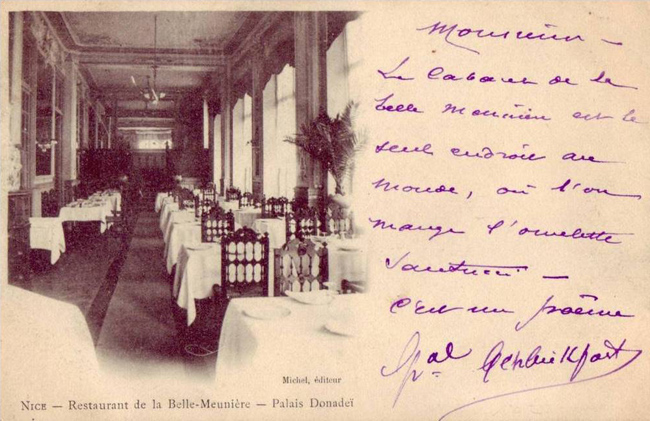 Monsieur —
Le Cabaret de la
belle meunière est le
seul endroit au
monde, où l'on
mange l'omelette
Santucci —
c'est un poème
Michel, éditeur
NICE — Restaurant de la Belle-Meunière — Palais Donadeï